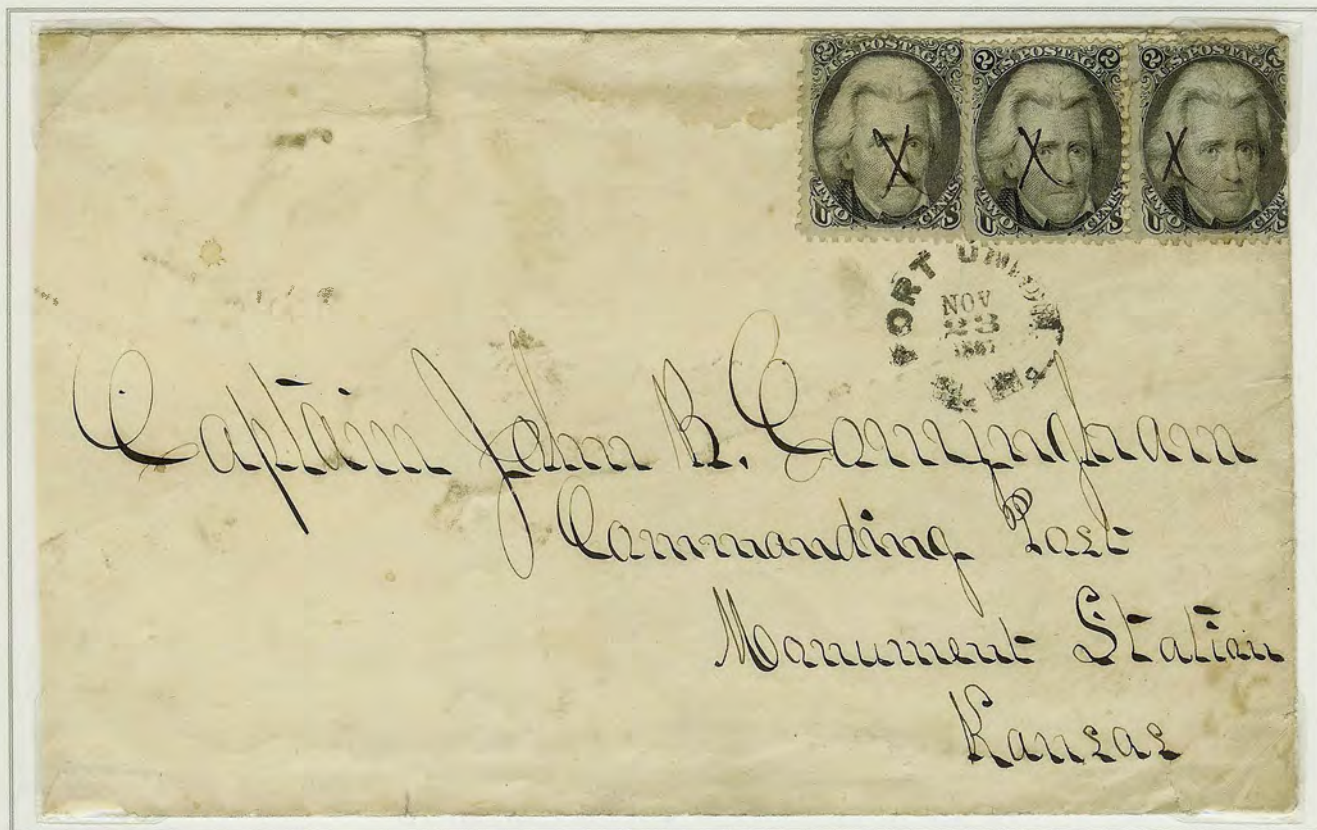 2 U.S. POSTAGE 2
U TWO CENTS S
2 U.S. POSTAGE 2
U TWO CENTS S
2 U.S. POSTAGE 2
U TWO CENTS S
X X X
FORT UNION
NOV
23
1867
Captain John R. Conyngham
Commanding Post
Monument Station
Kansas